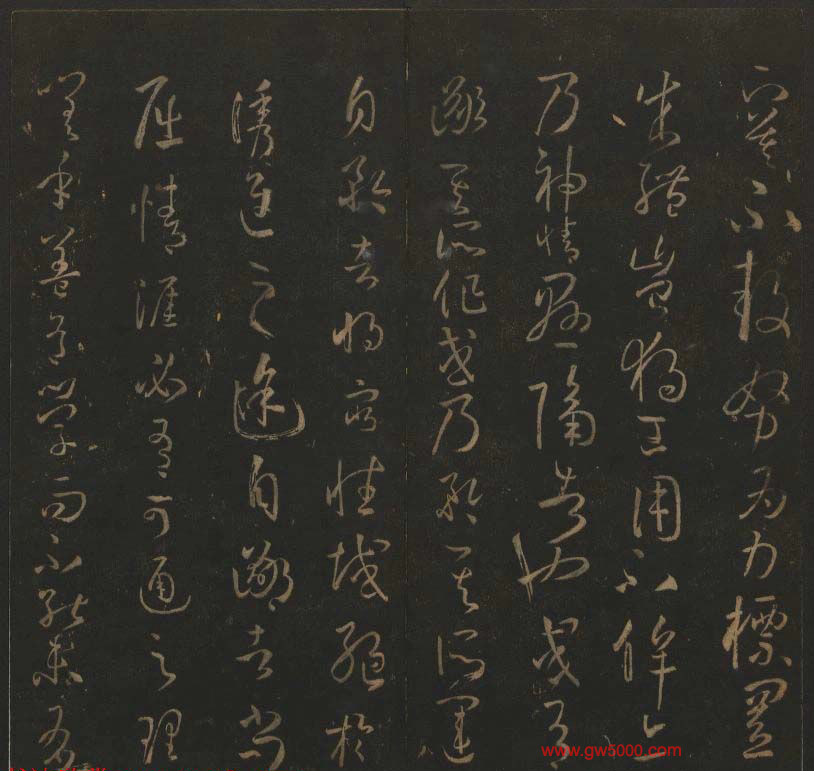 下莫不鼓努為力標置
成體豈獨工用不侔亦
乃神情懸隔者也或有
鄙其所作或乃矜其所運
自矜者將窮性域絕於
誘進之途自鄙者尚
屈情涯必有可通之理
嗟乎蓋有學而不能未有
www.gw5000.com